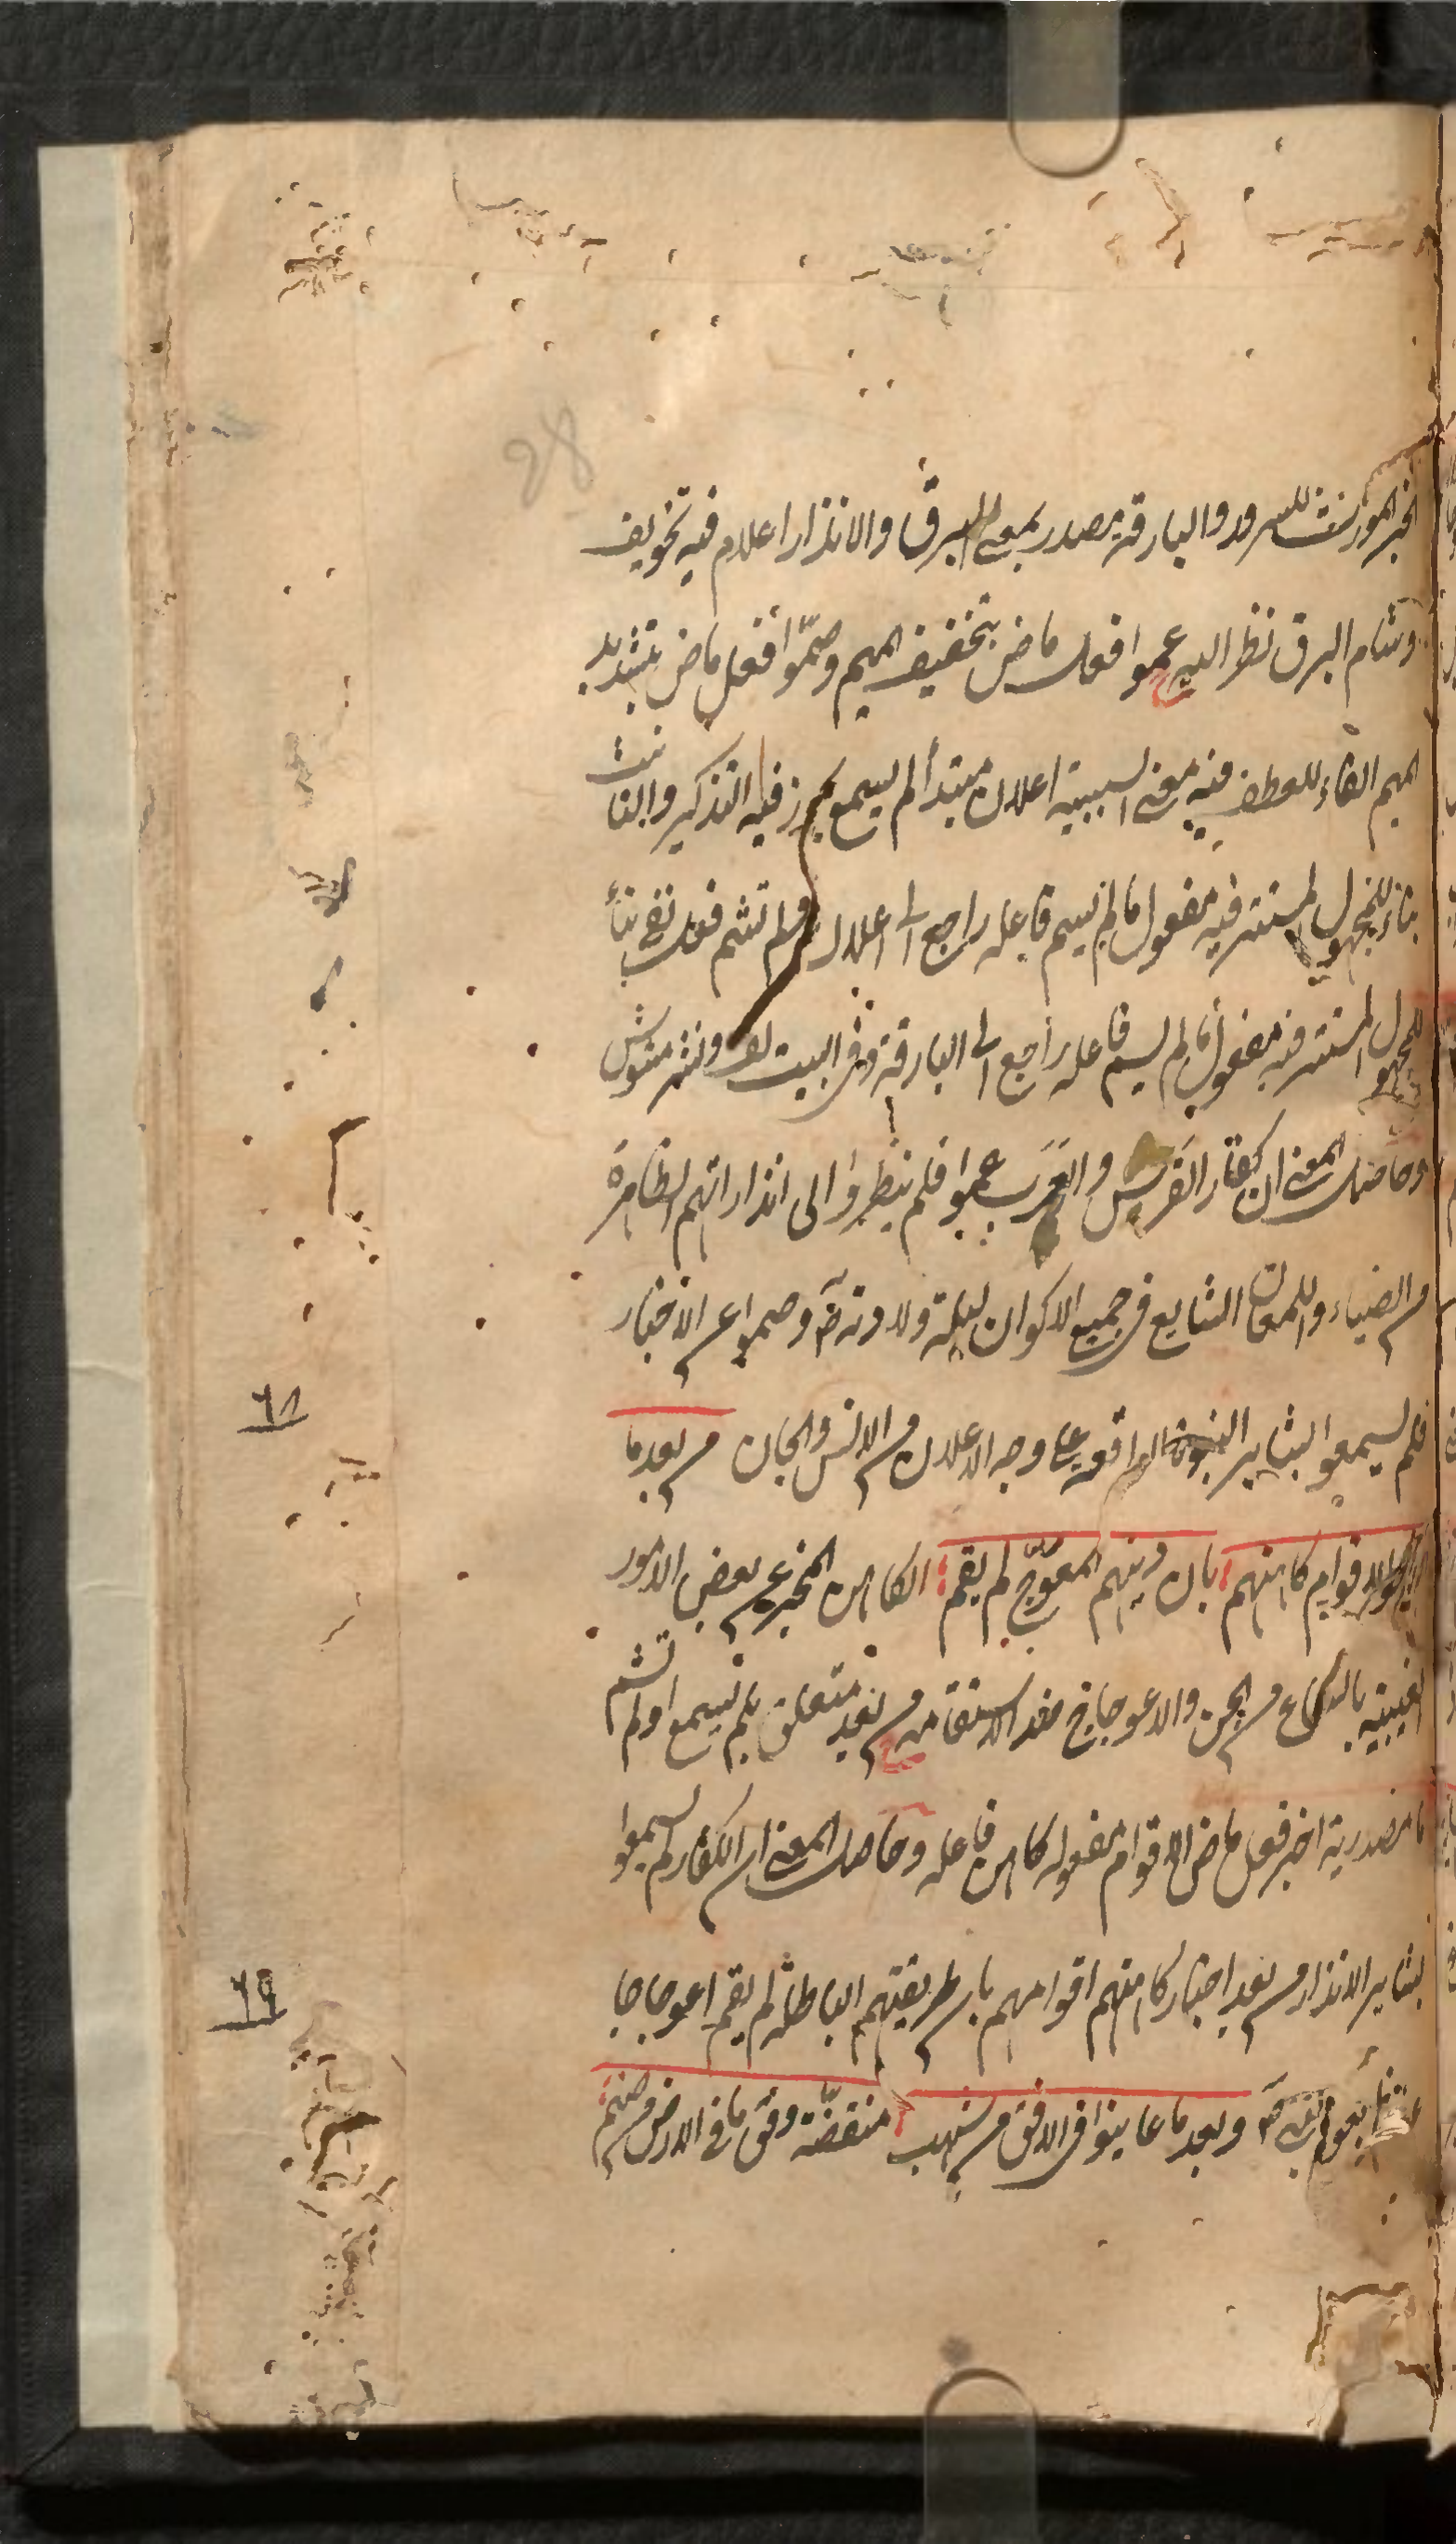 28
الخبر المورث للسرور والبارقة مصدر بمعنى البرق والانذار اعلام فيه تخويف
وشام البرق نظر اليه عموا فعل ماض بتخفيف الميم وصمّوا فعل ماض بتشديد
الميم الفاء للعطف فيه معنى السببية اعلان مبتدأ لم يسمع يجوز فيه التذكير والتانيث
بناء للمجهول المستتر فيه مفعول ما لم يسم فاعله راجع الى اعلان ولم تشم فعل نفي بناء
للمجهول المستتر فيه مفعول ما لم يسم فاعله راجع الى البارقة وفى البيت لف ونشر مشوش
وحاصل المعنى ان كفار القريش والعرب عموا فلم ينظروا الى انذاراتهم الظاهرة
من الضياء واللمعان الشايع فى جميع الاكوان ليلة ولادته صم وصموا عن الاخبار
فلم يسمعوا البشاير النبوة الواقعة على وجه الاعلان من الانس والجان من بعد ما
٦٨
اخبر الاقوام كاهنهم بان دينهم المعوّج لم يقم الكاهن المخبر عن بعض الامور
الغيبية بالسماع من الجن والاعوجاج ضد الاستقامة من بعد متعلق بلم يسمع او لم تشم
ما مصدرية اخبر فعل ماض الاقوام مفعوله كاهن فاعله وحاصل المعنى ان الكفار لم يسمعوا
بشاير الانذار من بعد اخبار كاهنهم اقوامهم بان طريقتهم الباطلة لم يقم اعوجاجا
٦٩
وبعد ما عاينوا فى الافق من شهب منقضّة وفق ما فى الارض من صنم